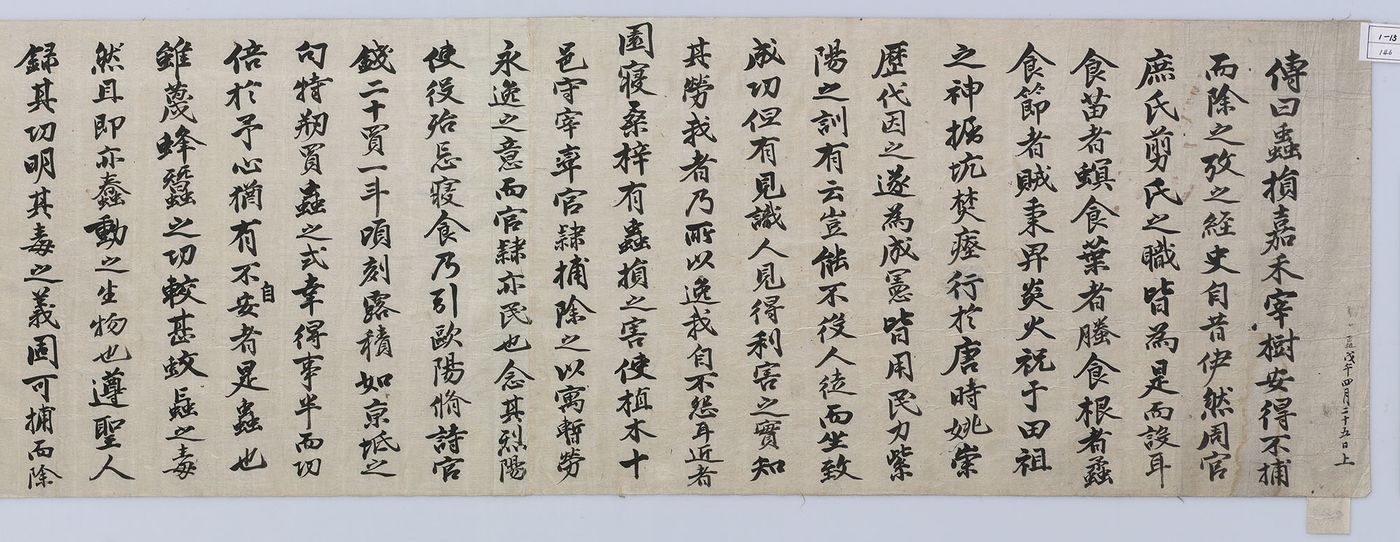 1-13
146
戊午四月二十五日上
傳曰蟲損嘉禾宰樹安得不捕
而除之攷之経史自昔伊然周官
庶氏剪氏之職皆為是而設耳
食苗者螟食葉者螣食根者蟊
食節者賊秉畀炎火祝于田祖
之神掘坑焚瘞行於唐時姚崇
歷代因之遂為成憲皆用民力紫
陽之訓有云豈能不役人徒而坐致
成功但有見識人見得利害之實知
其勞我者乃所以逸我自不怨耳近者
園寢桑梓有蟲損之害使植木十
邑守宰率官隸捕除之以寓暫勞
永逸之意而官隸亦民也念其烈陽
使役殆忘寢食乃引歐陽脩詩官
錢二十買一斗頃刻露積如京坻之
句特刱買蟲之式幸得事半而功
倍於予心猶有不自安者是蟲也
雖蔑蜂蠶之功較甚蚊蝱之毒
然且即亦蠢動之生物也遵聖人
錄其功明其毒之義固可捕而除